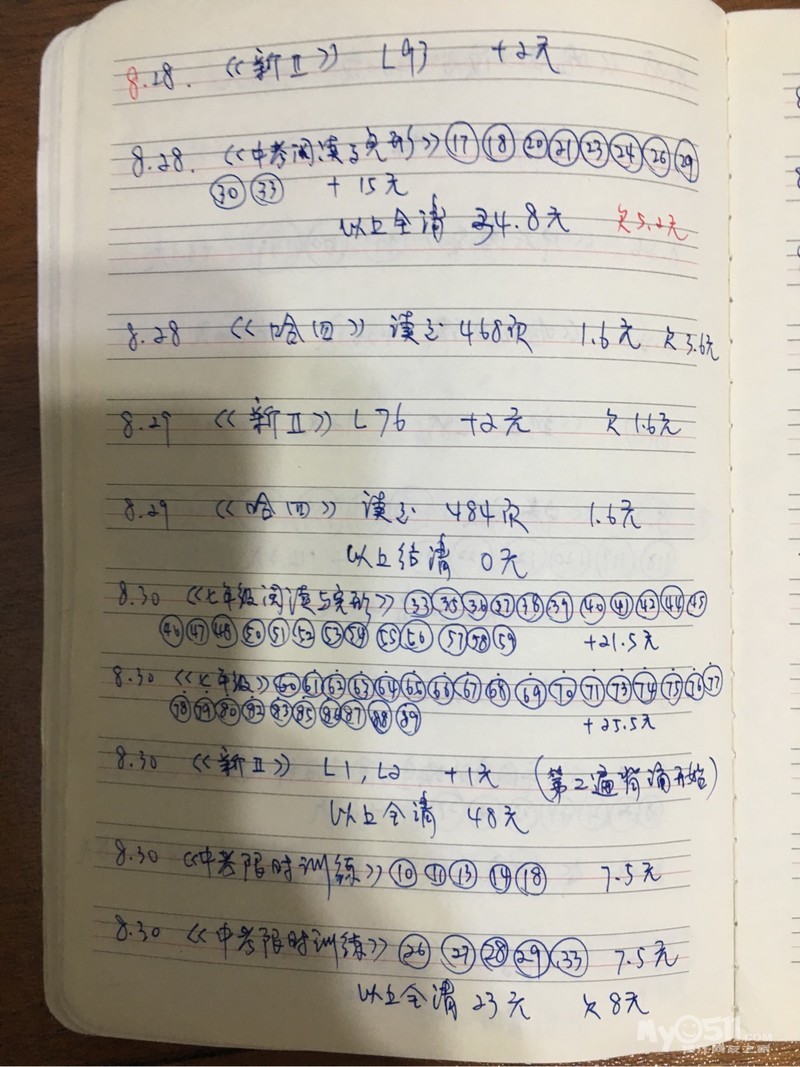 8.28. 《新II》 L93 +2元
8.28. 《中考阅读与完形》 ⑰ ⑱ ⑳ ㉑ ㉓ ㉔ ㉖ ㉙
㉚ ㉝ +15元
以上全清 34.8元 欠5.2元
8.28 《哈四》 读至 468页 1.6元 欠3.6元
8.29 《新II》 L76 +2元 欠1.6元
8.29 《哈四》 读至 484页 1.6元
以上结清 0元
8.30 《七年级阅读与完形》 ㉝ ㉟ ㊱ ㊲ ㊳ ㊴ ㊵ ㊶ ㊷ ㊹ ㊺
㊻ ㊼ ㊽ ㊿ 51 52 53 54 55 56 57 58 59 +21.5元
8.30 《七年级》 60 61 62 63 64 65 66 67 68 69 70 71 73 74 75 76 77
78 79 80 82 83 85 86 87 88 89 +25.5元
8.30 《新II》 L1, L2 +1元 (第2遍背诵开始)
以上全清 48元
8.30 《中考限时训练》 ⑩ ⑪ ⑬ ⑭ ⑱ 7.5元
8.30 《中考限时训练》 ㉖ ㉗ ㉘ ㉙ ㉝ 7.5元
以上全清 23元 欠8元
My0511.COM